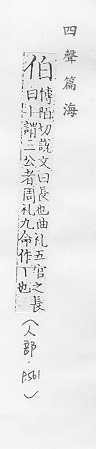 四聲篇海
伯
博陌切說文曰長也曲礼五官之長
曰丨謂三公者周礼九命作丨也
（人部・P561）